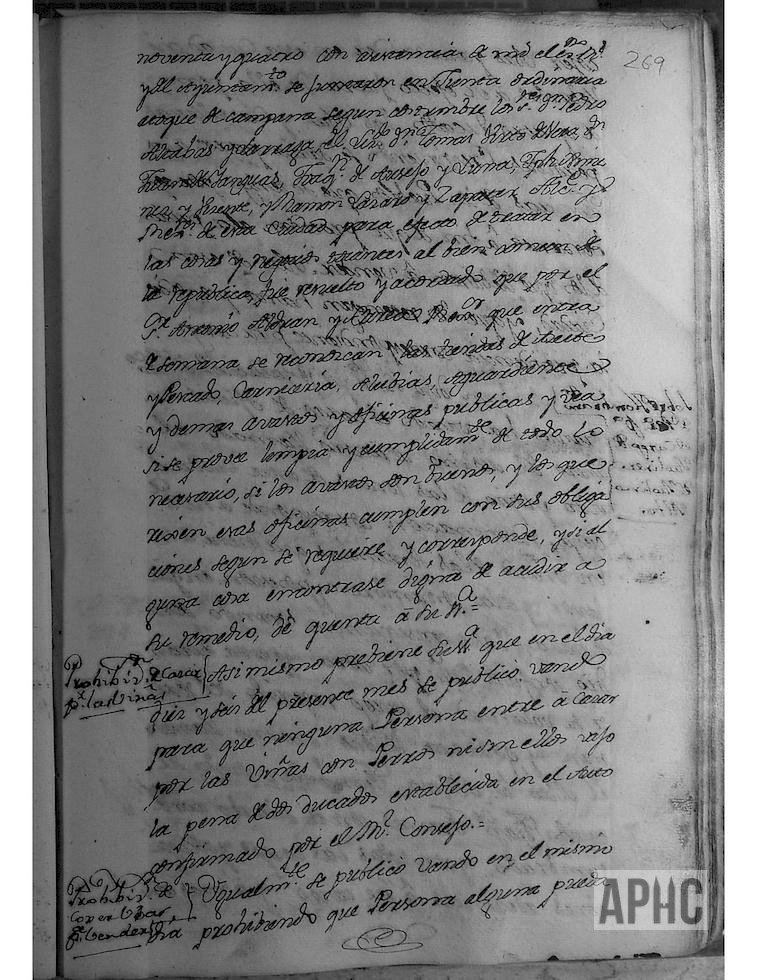 269
noventa y quatro con asistencia de mi el esno.
y del Ayuntamto. se juntaron en Junta ordinaria
atoque de campana segun costumbre los Sres. dn. Pedro
el Lizdo. dn. Tomas de Vera, dn.
Juan de Joaqn. de Asensio y Jph Ximenez
y Llorente, y Ramon Lazaro y Zapater Alce. y
de esta Ciudad para efecto de tratar en
las cosas y negocios tocantes al bien comun de
la republica, fue resuelto y acordado que por el
Sr. Antonio y Regor. que entra
de semana se reconozcan las tiendas de Azeite
y Pescado, Carniceria, Alubias, Aguardiente
y demas avastos y oficinas publicas y vea
si se provee limpia y cumplidamte. de todo lo
necesario, si los avastos son buenos, y los que
rixen esas oficinas cumplen con sus obliga
ciones segun se requiere y corresponde, y si al
guna cosa encontrase digna de acudir a
su remedio, de quenta â su Sa.=
Prohibin. de Cazar
pr. las Viñas
Asi mismo prebiene su Sa. que en el dia
diez y seis del presente mes se publico vando
para que ninguna Persona entre â Cazar
por las Viñas con Perros ni sin ellos vajo
la pena de dos ducados establecida en el Auto
confirmado por el Rl. Consejo.=
Prohibin. de
Cojer Ubas
pa. Vender
Ygualmte. se publico Vando en el mismo
dia prohibiendo que Persona alguna pueda
APHC